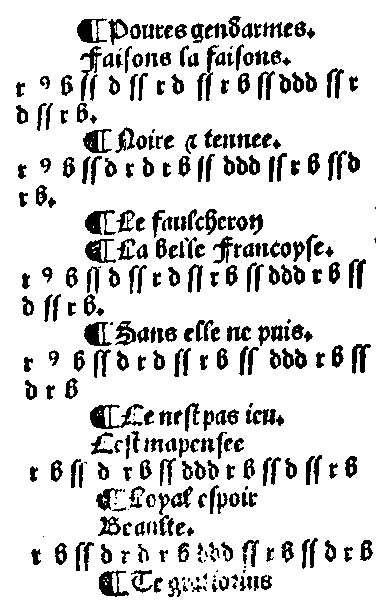 ¶ Poures gendarmes.
Faiſons la faiſons.
r 9 b ſſ d ſſ r d ſſ r b ſſ ddd ſſ r
d ſſ r b.
¶ Noire ⁊ tennee.
r 9 b ſſ d r d r b ſſ ddd ſſ r b ſſ d
r b.
¶ Le faulcheron
¶ La belle Francoyſe.
r 9 b ſſ d ſſ r d ſſ r b ſſ ddd r b ſſ
d ſſ r b.
¶ Sans elle ne puis.
r 9 b ſſ d r d ſſ r b ſſ ddd r b ſſ
d r b
¶ Ce neſt pas ieu.
Ceſt mapenſee
r b ſſ d r b ſſ ddd r b ſſ d ſſ r b
¶ Loyal eſpoir
Beaulte.
r b ſſ d r d r b ddd ſſ r b ſſ d r b
¶ Te